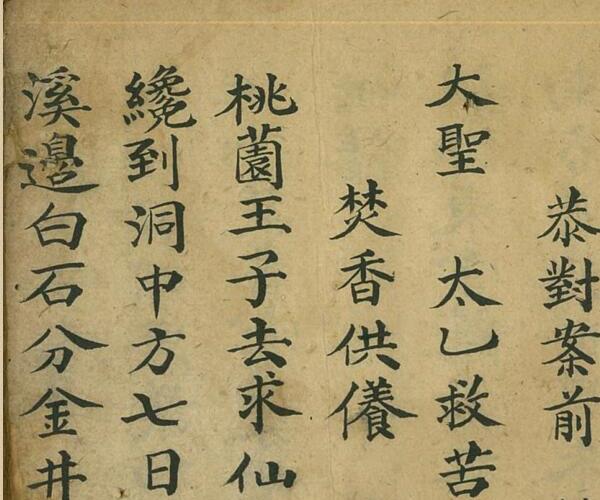 恭對案前
大聖　太乙救苦
焚香供養
桃薗王子去求仙
纔到洞中方七日
溪邉白石分金井